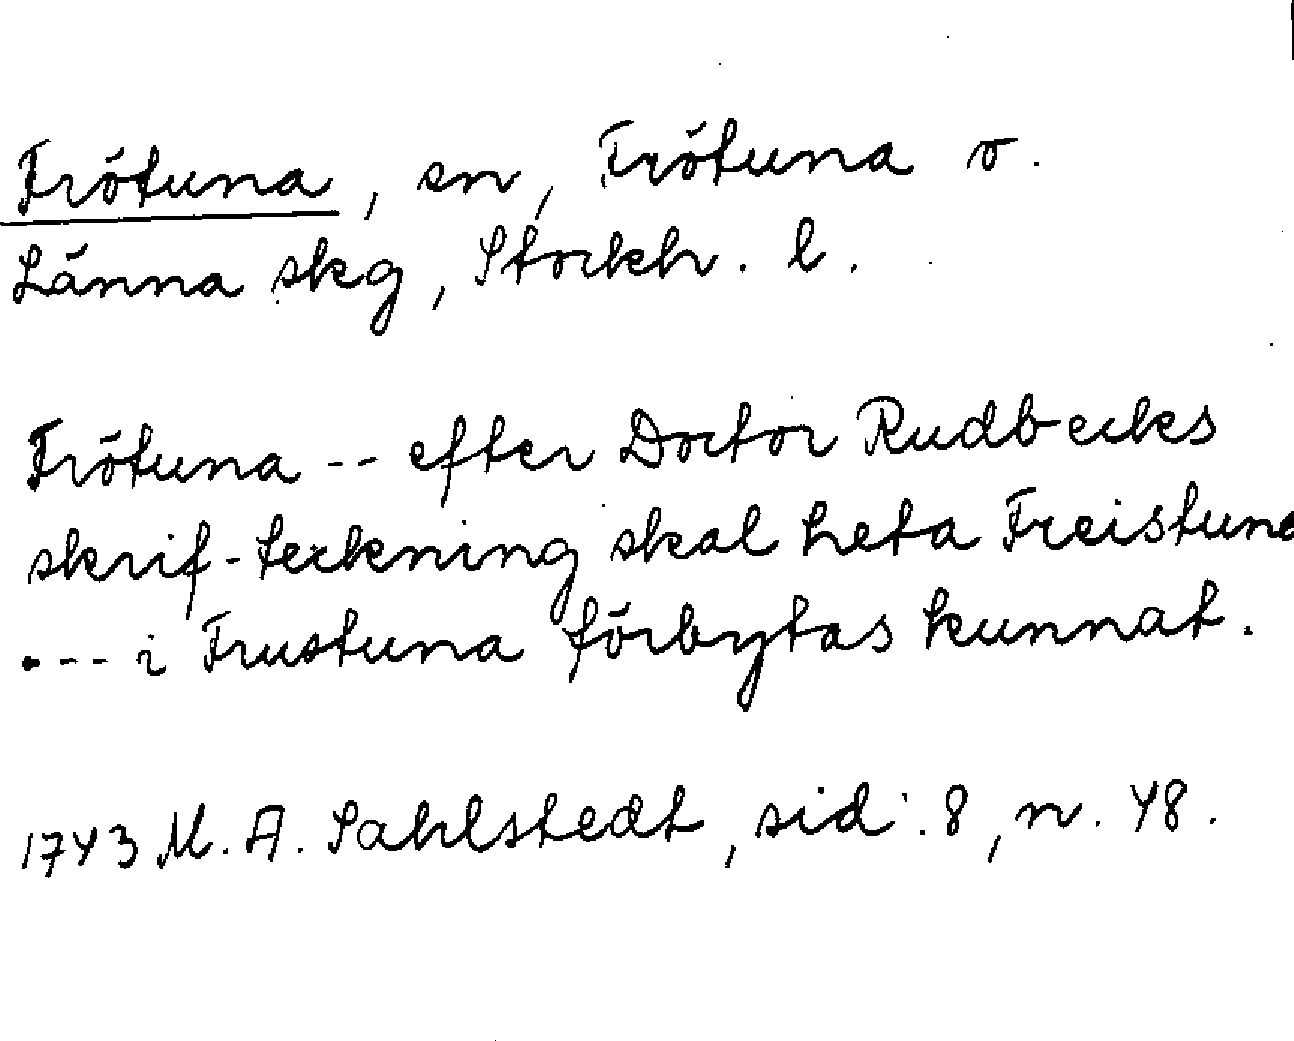 Frötuna, sn, Frötuna o.
Länna skg, Stockh. l.
Frötuna -- efter Doctor Rudbecks
skrif-teckning skal heta Freistuna
---- i Frustuna förbytas kunnat.
1743 M. A. Sahlstedt, sid. 8, n. 48.